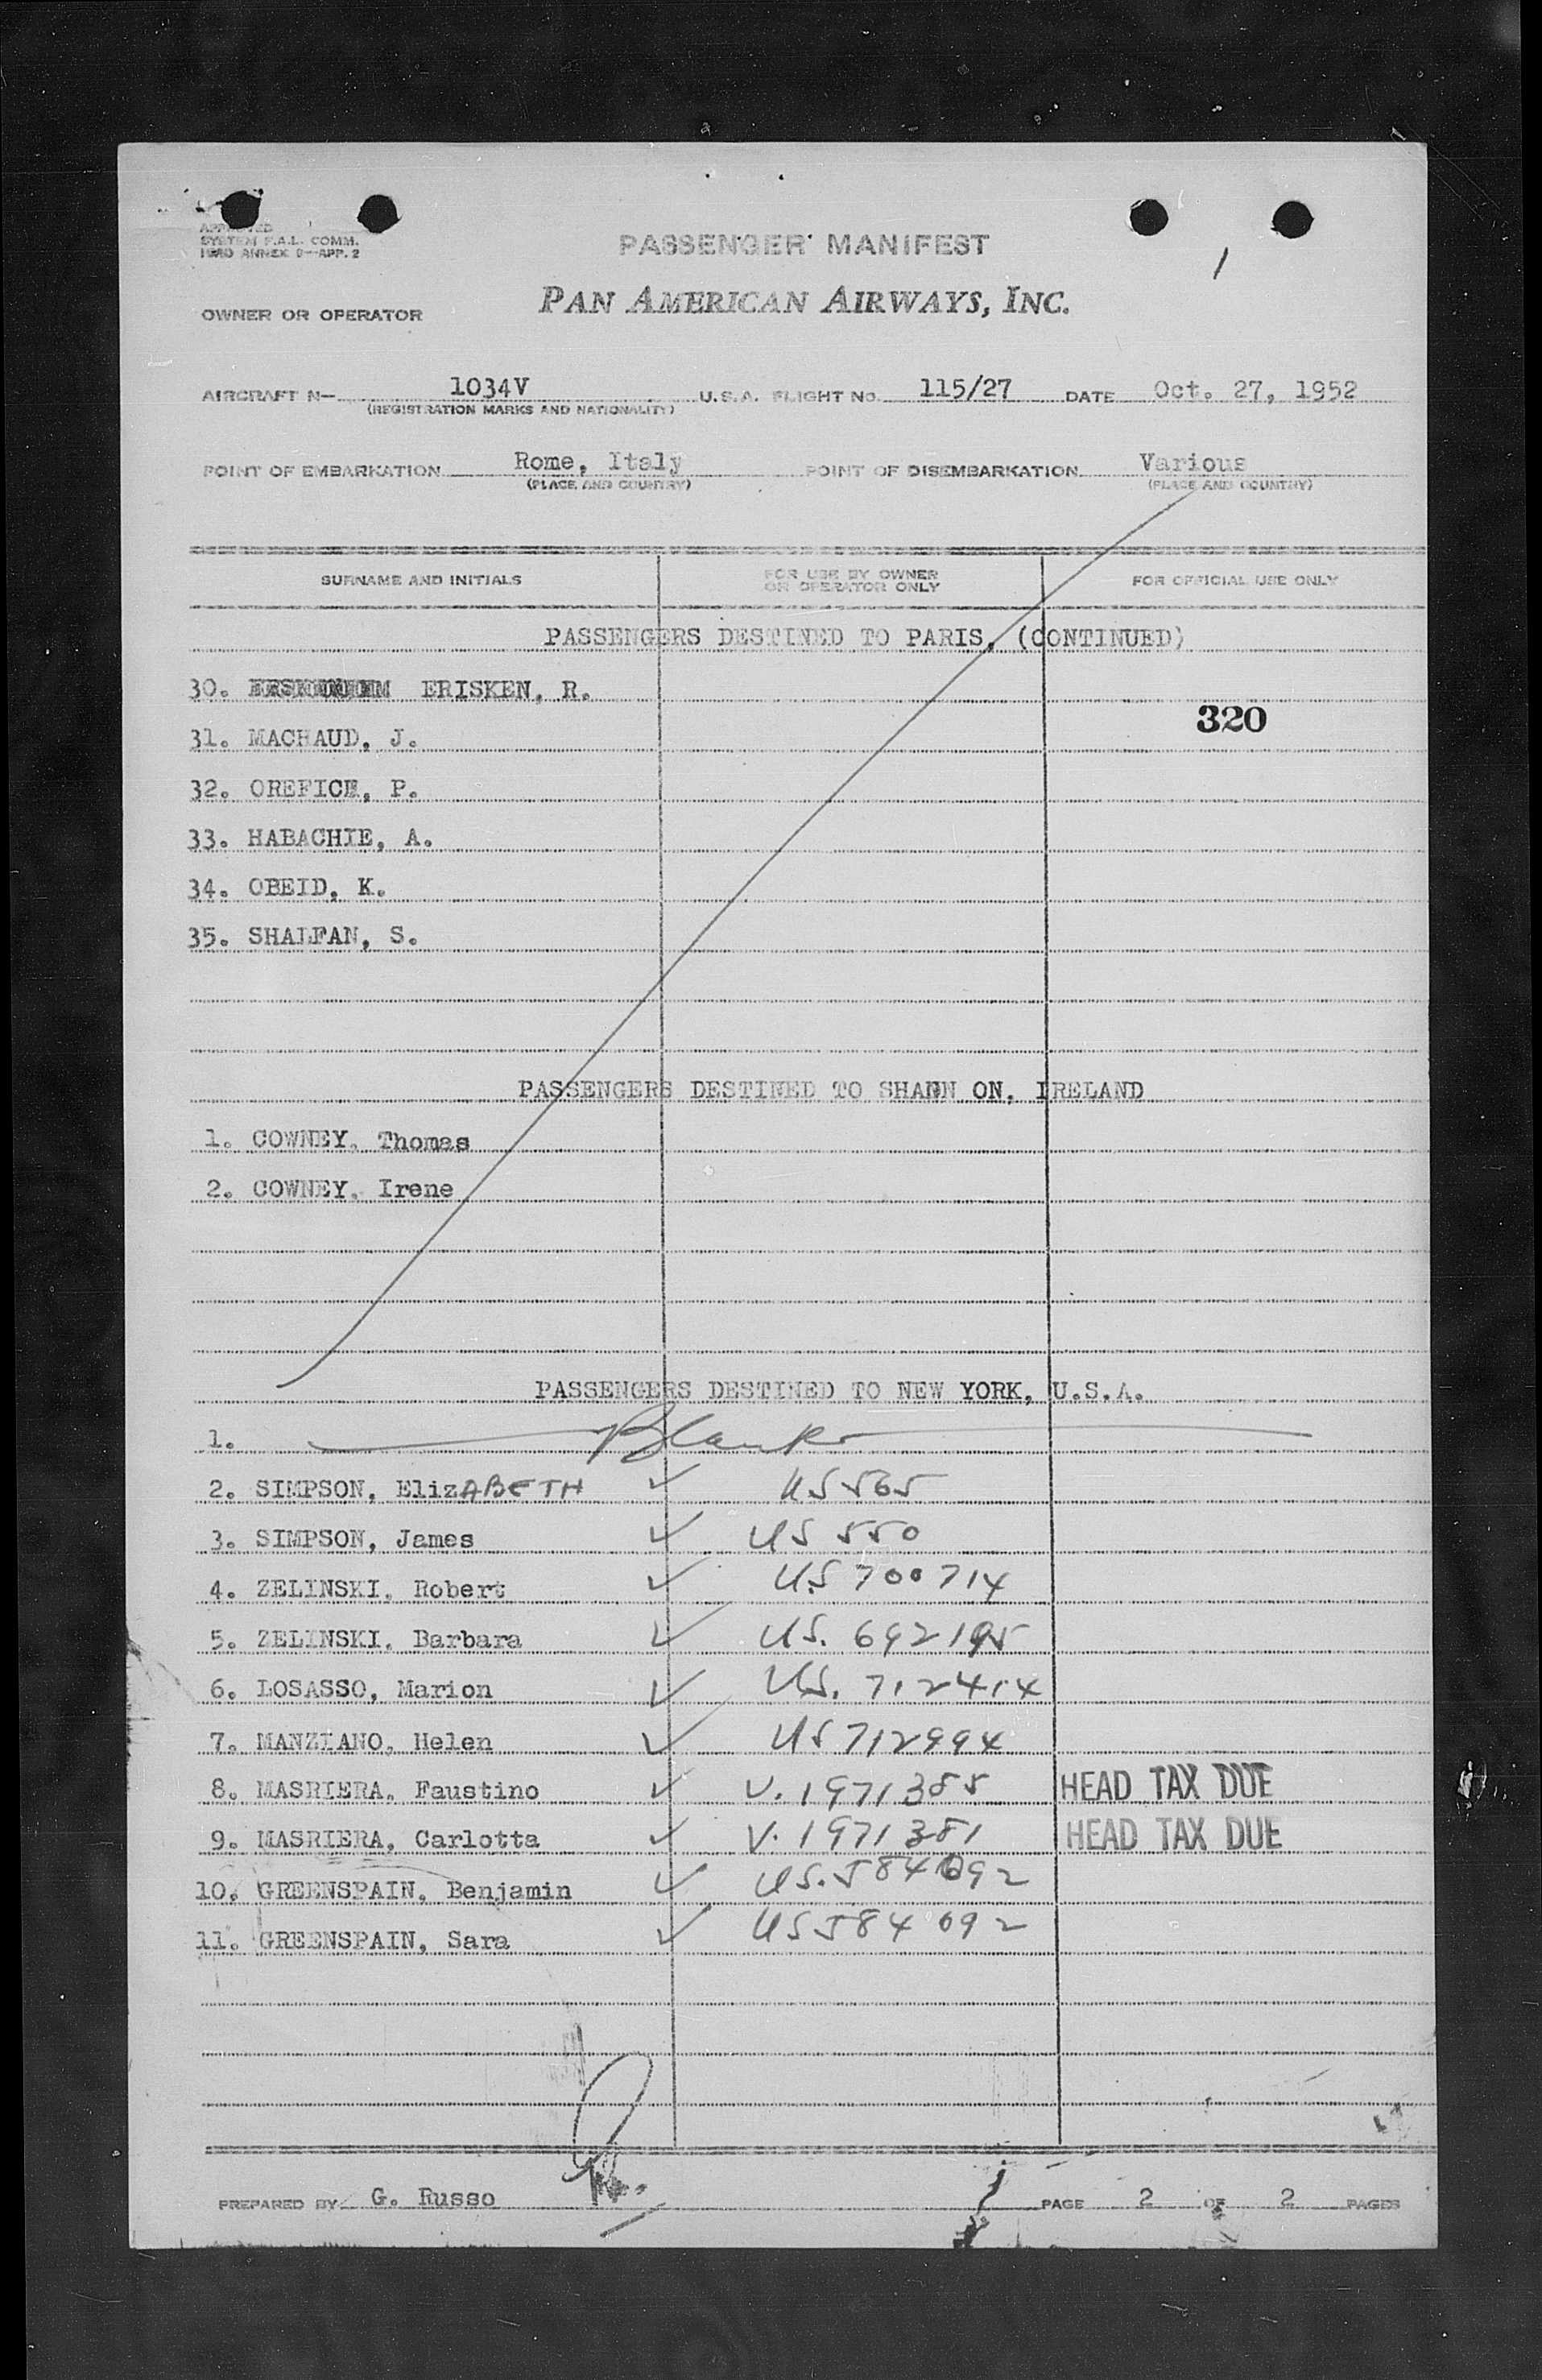 APPROVED
SYSTEM F.A.L. COMM.
ICAO ANNEX 9—APP. 2
PASSENGER MANIFEST
1
PAN AMERICAN AIRWAYS, INC.
OWNER OR OPERATOR
AIRCRAFT N— 1034V U.S.A. FLIGHT NO. 115/27 DATE Oct. 27, 1952
(REGISTRATION MARKS AND NATIONALITY)
POINT OF EMBARKATION Rome, Italy POINT OF DISEMBARKATION Various
(PLACE AND COUNTRY) (PLACE AND COUNTRY)
SURNAME AND INITIALS FOR USE BY OWNER OR OPERATOR ONLY FOR OFFICIAL USE ONLY
PASSENGERS DESTINED TO PARIS, (CONTINUED)
30. ERISKEN, R.
320
31. MACHAUD, J.
32. OREFICE, P.
33. HABACHIE, A.
34. OBEID, K.
35. SHALFAN, S.
PASSENGERS DESTINED TO SHANN ON, IRELAND
1. COWNEY, Thomas
2. COWNEY, Irene
PASSENGERS DESTINED TO NEW YORK, U.S.A.
1. Blank
2. SIMPSON, ElizABETH ✓ US 565
3. SIMPSON, James ✓ US 550
4. ZELINSKI, Robert ✓ US 700714
5. ZELINSKI, Barbara ✓ US. 692195
6. LOSASSO, Marion ✓ US. 712414
7. MANZIANO, Helen ✓ US 712994
8. MASRIERA, Faustino ✓ V. 1971385 HEAD TAX DUE
9. MASRIERA, Carlotta ✓ V. 1971381 HEAD TAX DUE
10. GREENSPAIN, Benjamin ✓ US. 584092
11. GREENSPAIN, Sara ✓ US 584092
PREPARED BY G. Russo PAGE 2 OF 2 PAGES